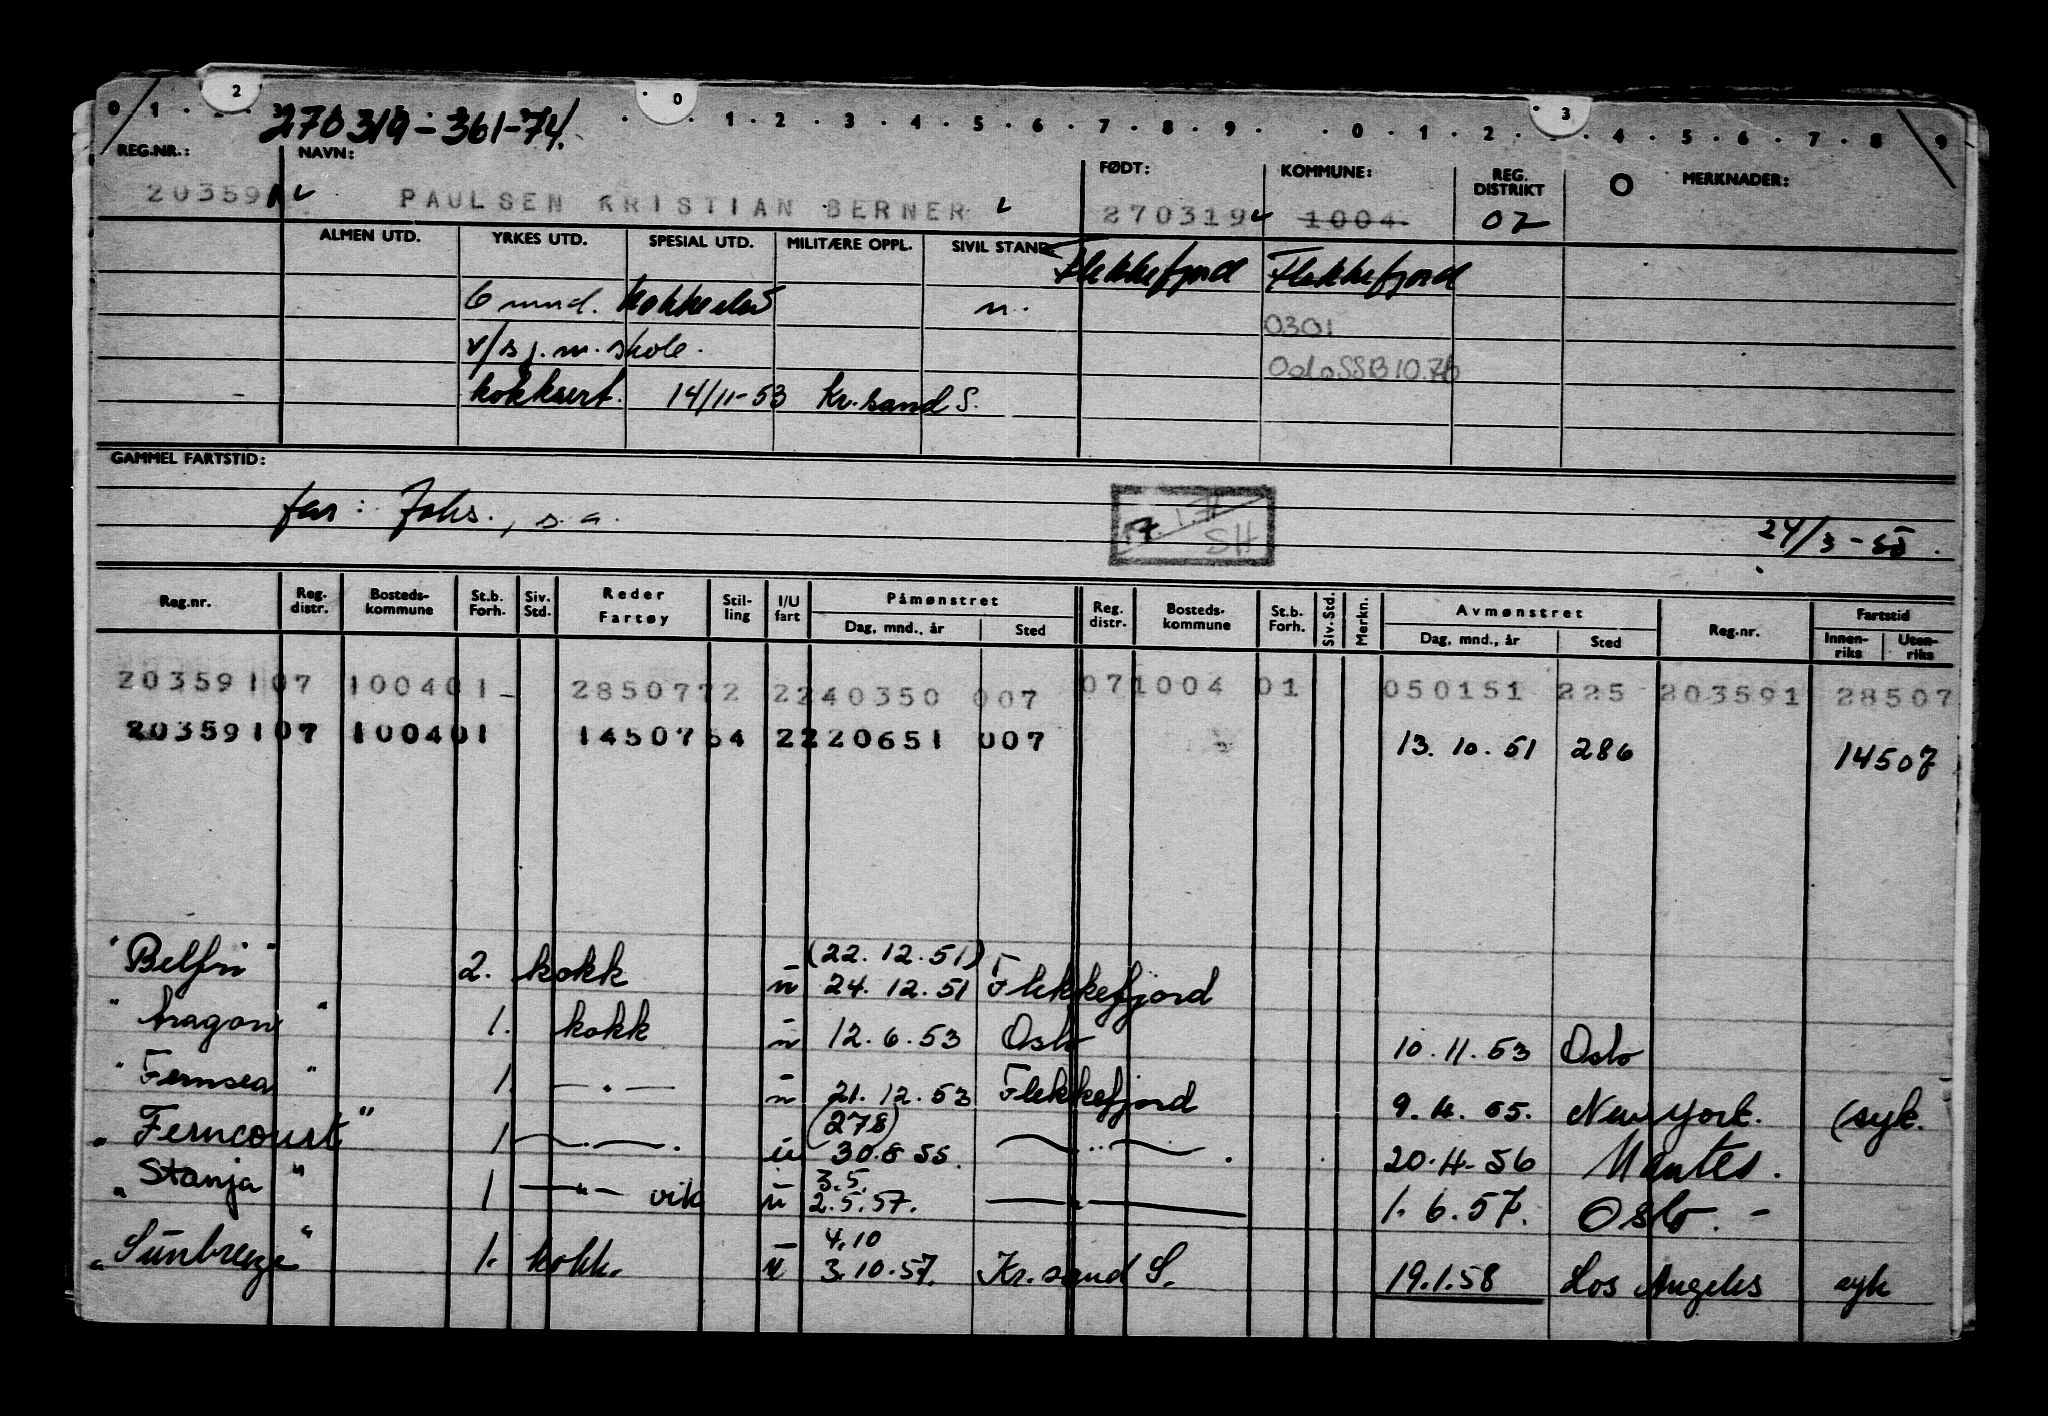 0 1 2 0 1 2 3 4 5 6 7 8 9 0 1 2 3 4 5 6 7 8 9
270319-361-74.
REG.NR.: NAVN: FØDT: KOMMUNE: REG. DISTRIKT MERKNADER:
203591 PAULSEN KRISTIAN BERNER 270319 1004 02
ALMEN UTD. YRKES UTD. SPESIAL UTD. MILITÆRE OPPL. SIVIL STAND
Flekkefjord Flekkefjord
6 mnd. u.
0301
v/sj.m.skole.
Oslo SSB 10.76
kokksert. 14/11-53 Kr.sand S.
GAMMEL FARTSTID:
far: Johs., s.a.
SH
24/3-55.
Reg.nr. Reg. distr. Bosteds-kommune St.b. Forh. Siv. Std. Reder Fartøy Stil-ling I/U fart Påmønstret Dag, mnd., år Sted Reg. distr. Bosteds-kommune St.b. Forh. Siv.Std. Merkn. Avmønstret Dag, mnd., år Sted Reg.nr. Fartstid Innen-riks Uten-riks
203591 07 1004 01 28507 72 2 240350 007 07 1004 01 050151 225 203591 28507
203591 07 1004 01 14507 54 2 220651 007 13.10.51 286 14507
(22.12.51)
"Belfri" 2. kokk u 24.12.51 Flekkefjord
"Aragon" 1. kokk u 12.6.53 Oslo 10.11.53 Oslo
"Fernsea" 1. — " — u 21.12.53 Flekkefjord 9.4.55. New York. (syk.
(278)
"Ferncourt" 1 — " —. u 30.8 55. — " —. 20.4-56 Nantes.
3.5.
"Stanja" 1 — " — vik u 2.5.57. — " — 1.6.57. Oslo. -
4.10
"Sunbreeze" 1. kokk. u 3.10.57. Kr.sand S. 19.1.58 Los Angeles syk